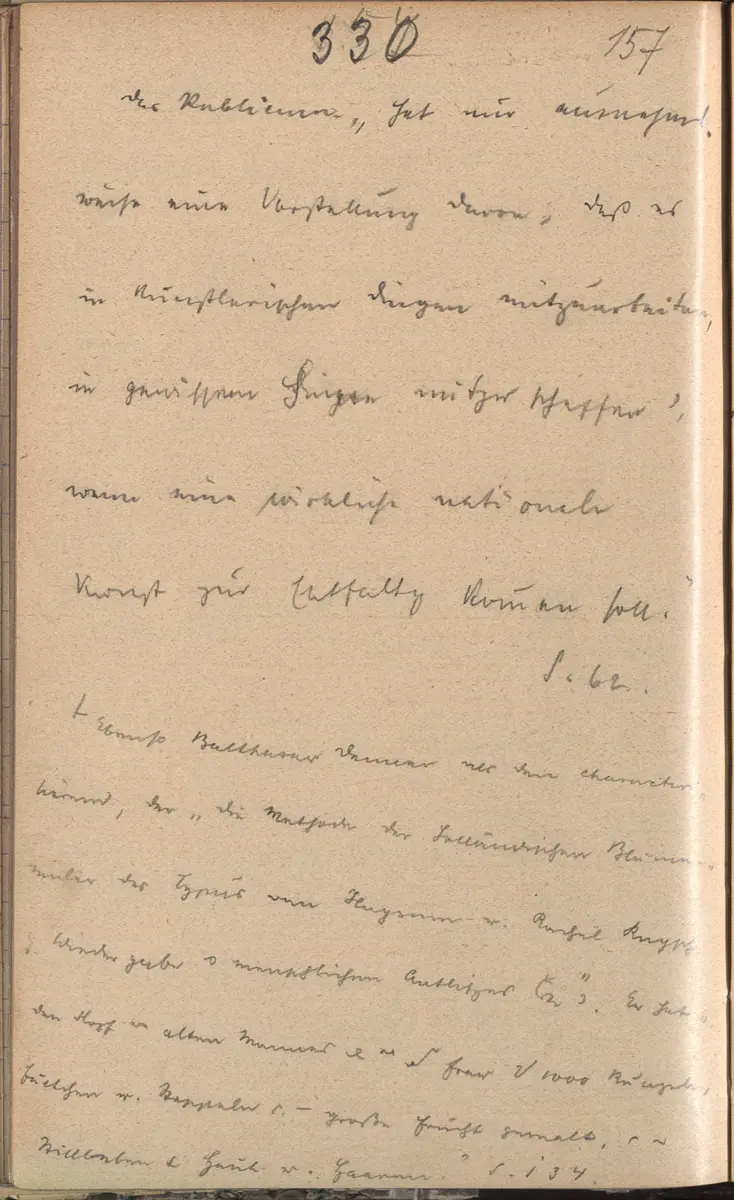 330 157
des Publicums „ hat nur ausnahms-
weise eine Vorstellung davon, daß es
in künstlerischen Dingen mitzuarbeiten,
in gewissem mitzuschaffen ,
wenn eine wirkliche nationale
Kunst zur Entfaltg kommen soll."
S. 62.
Ebenso Balthasar Denner als den character
sirend, der „die Methode der holländischen Blumen-
maler des Typus van Huysum u. Rachel Ruysch
Wiedergabe menschlichen Antlitzes . Er hat
den Kopf alten Mannes 1000 Runzeln,
Fältchen u. Stoppeln große Frucht gemalt,
Stillleben Haut u. Haaren." S. 134.